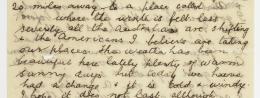 20 miles away to a place called
where the world is felt less
severely all the Australians are shifting
& the Americans I believe are taking
our places. The weather has been
beautiful here lately plenty of warm
sunny days but today we have
had a change & it is cold & windy
I hope it does not last although